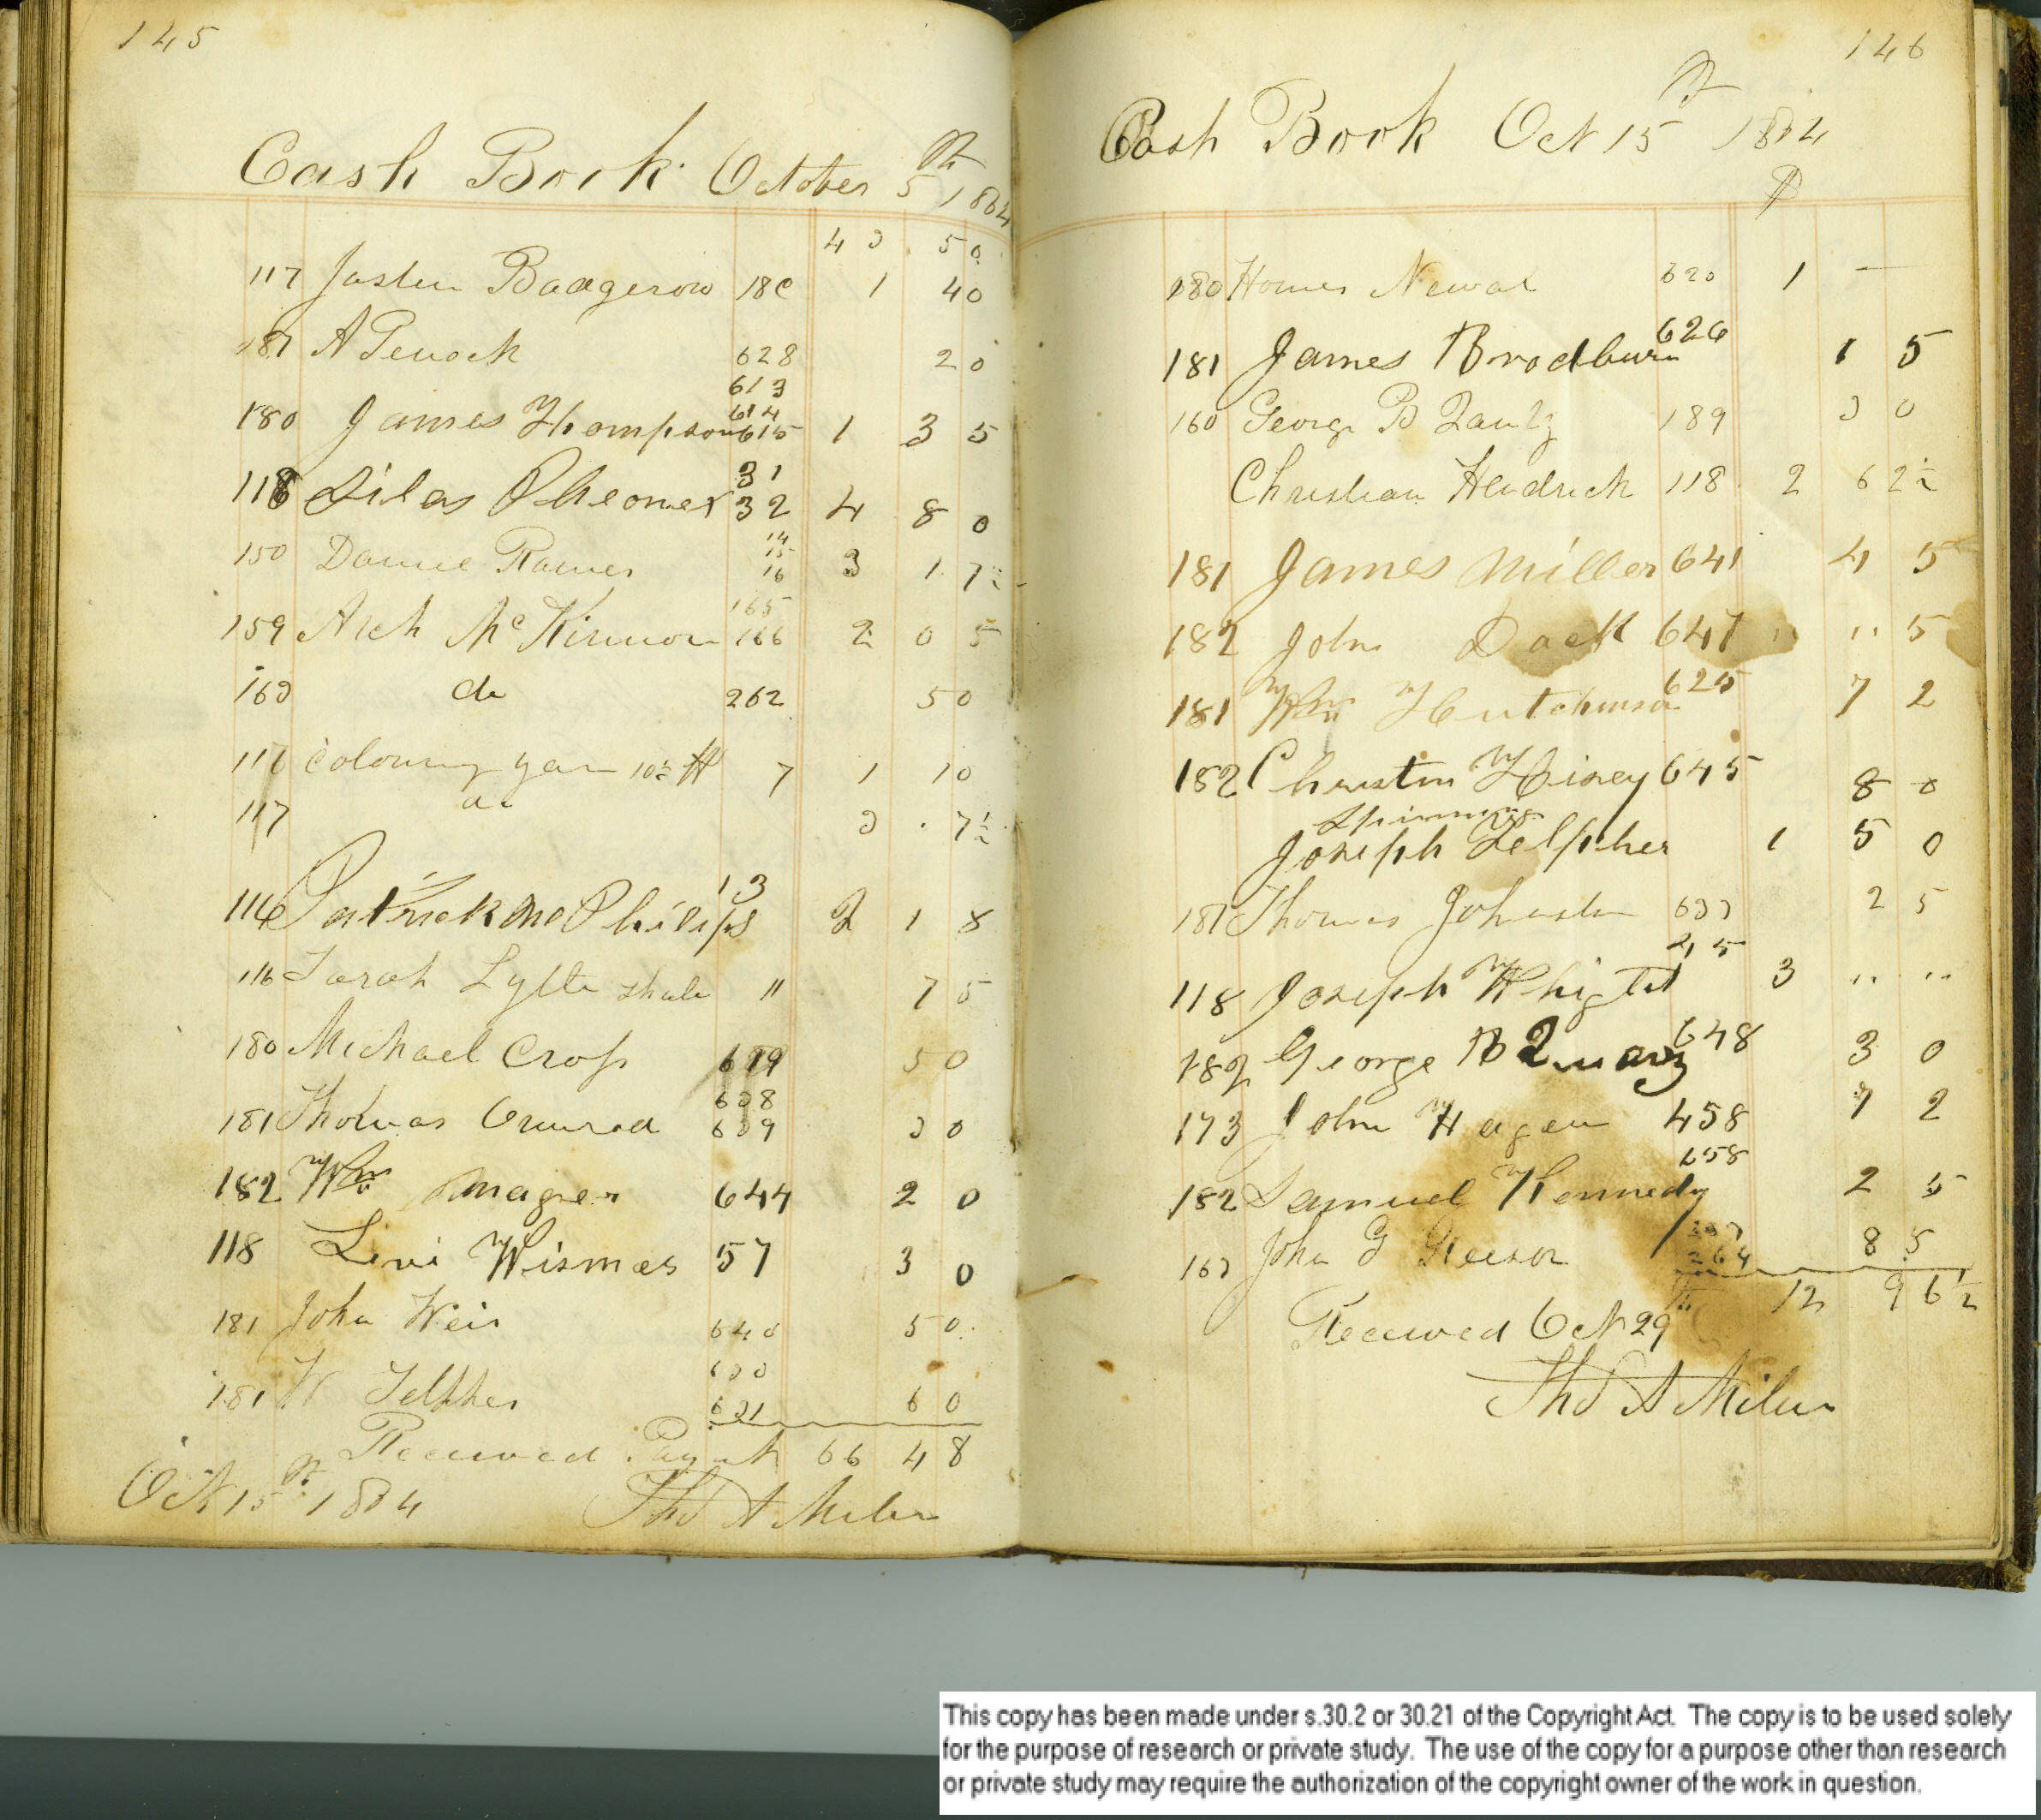 145
Cash Book October 5th 1864
43 50
117 Justin Badgerow 180 1 40
181 A Penock 628 20
613
614
180 James Thompson 615 1 35
31
118 Silas Pheonex 32 4 80
14
15
150 Daniel Ramer 16 3 17½
165
159 Arch McKinnon 166 2 05
163 do 262 50
116 Colouring yarn 10½ lb 7 1 10
117 do 3 7½
13
116 Patrick McPhilips 2 18
116 Sarah Lytle 11 75
180 Michael Cross 619 50
638
181 Thomas 639 30
182 Wm 644 20
118 Levi Wismer 57 30
181 John Weir 640 50
630
181 W Telfher 631 60
Received Paymt 66 48
Oct 15th 1864 Thos A Milne
146
Cash Book Oct 15th 1864
180 Homer Newal 620 1 —
626
181 James Brodburn 1 5
160 George B Lautz 189 30
Christian Heidrick 118 2 62½
181 James Miller 641 45
182 John Dack 647 " " 5
625
181 Wm Hutchinson 72
182 Christin Hisey 645 80
Spinning
Joseph Telfpher 1 50
181 Thomas Johnston 633 25
215
118 Joseph Whigtt 3 " "
648
182 George B 30
173 John Hagen 458 72
658
182 Samuel Kennedy 25
163 John G Reesor 264 85
12 96½
Received Oct 29th
Thos A Milne
This copy has been made under s.30.2 or 30.21 of the Copyright Act. The copy is to be used solely
for the purpose of research or private study. The use of the copy for a purpose other than research
or private study may require the authorization of the copyright owner of the work in question.